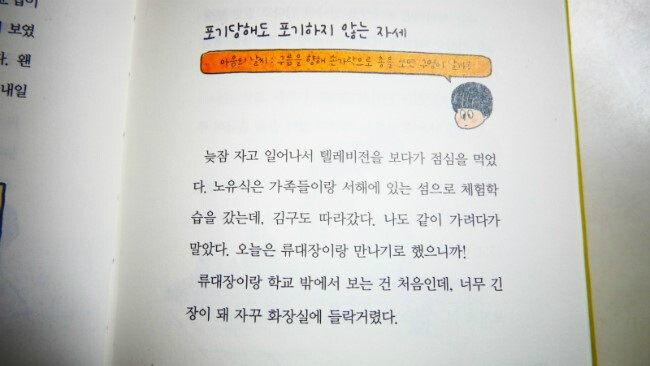 보였
. 왠
내일
포기당해도 포기하지 않는 자세
마음의 날씨 : 구름을 향해 손가락으로 총을 쏘면
늦잠 자고 일어나서 텔레비전을 보다가 점심을 먹었
다. 노유식은 가족들이랑 서해에 있는 섬으로 체험학
습을 갔는데, 김구도 따라갔다. 나도 같이 가려다가
말았다. 오늘은 류대장이랑 만나기로 했으니까!
류대장이랑 학교 밖에서 보는 건 처음인데, 너무 긴
장이 돼 자꾸 화장실에 들락거렸다.